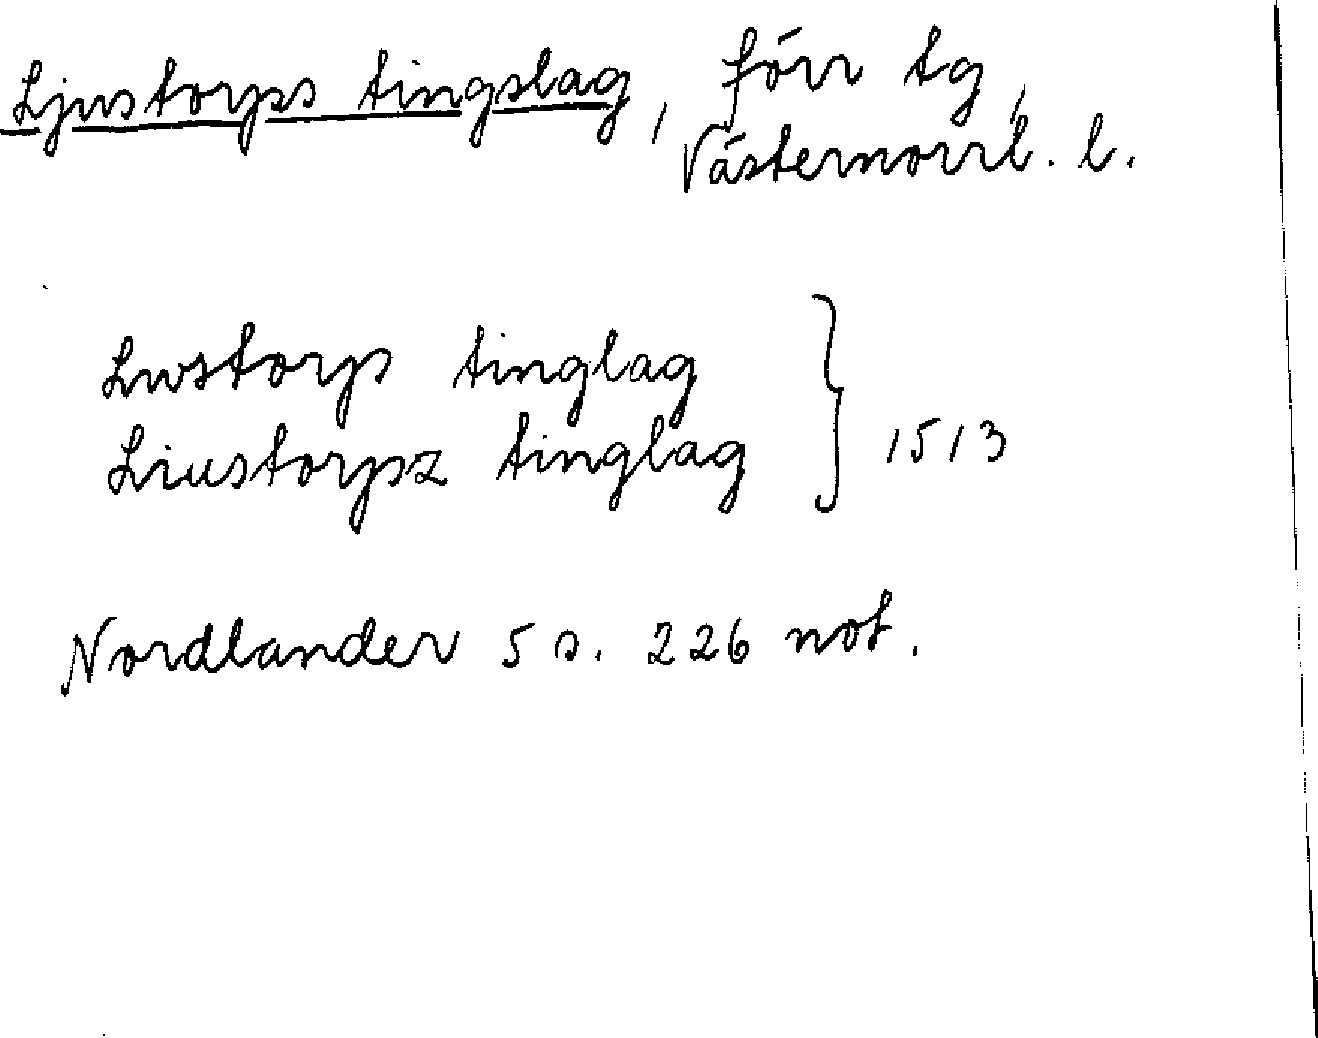 Ljustorps tingslag, förr tg,
Västernorrl. l.
Lwstorps tinglag
Liustorpsz tinglag } 1513
Nordlander 5 s. 226 not.